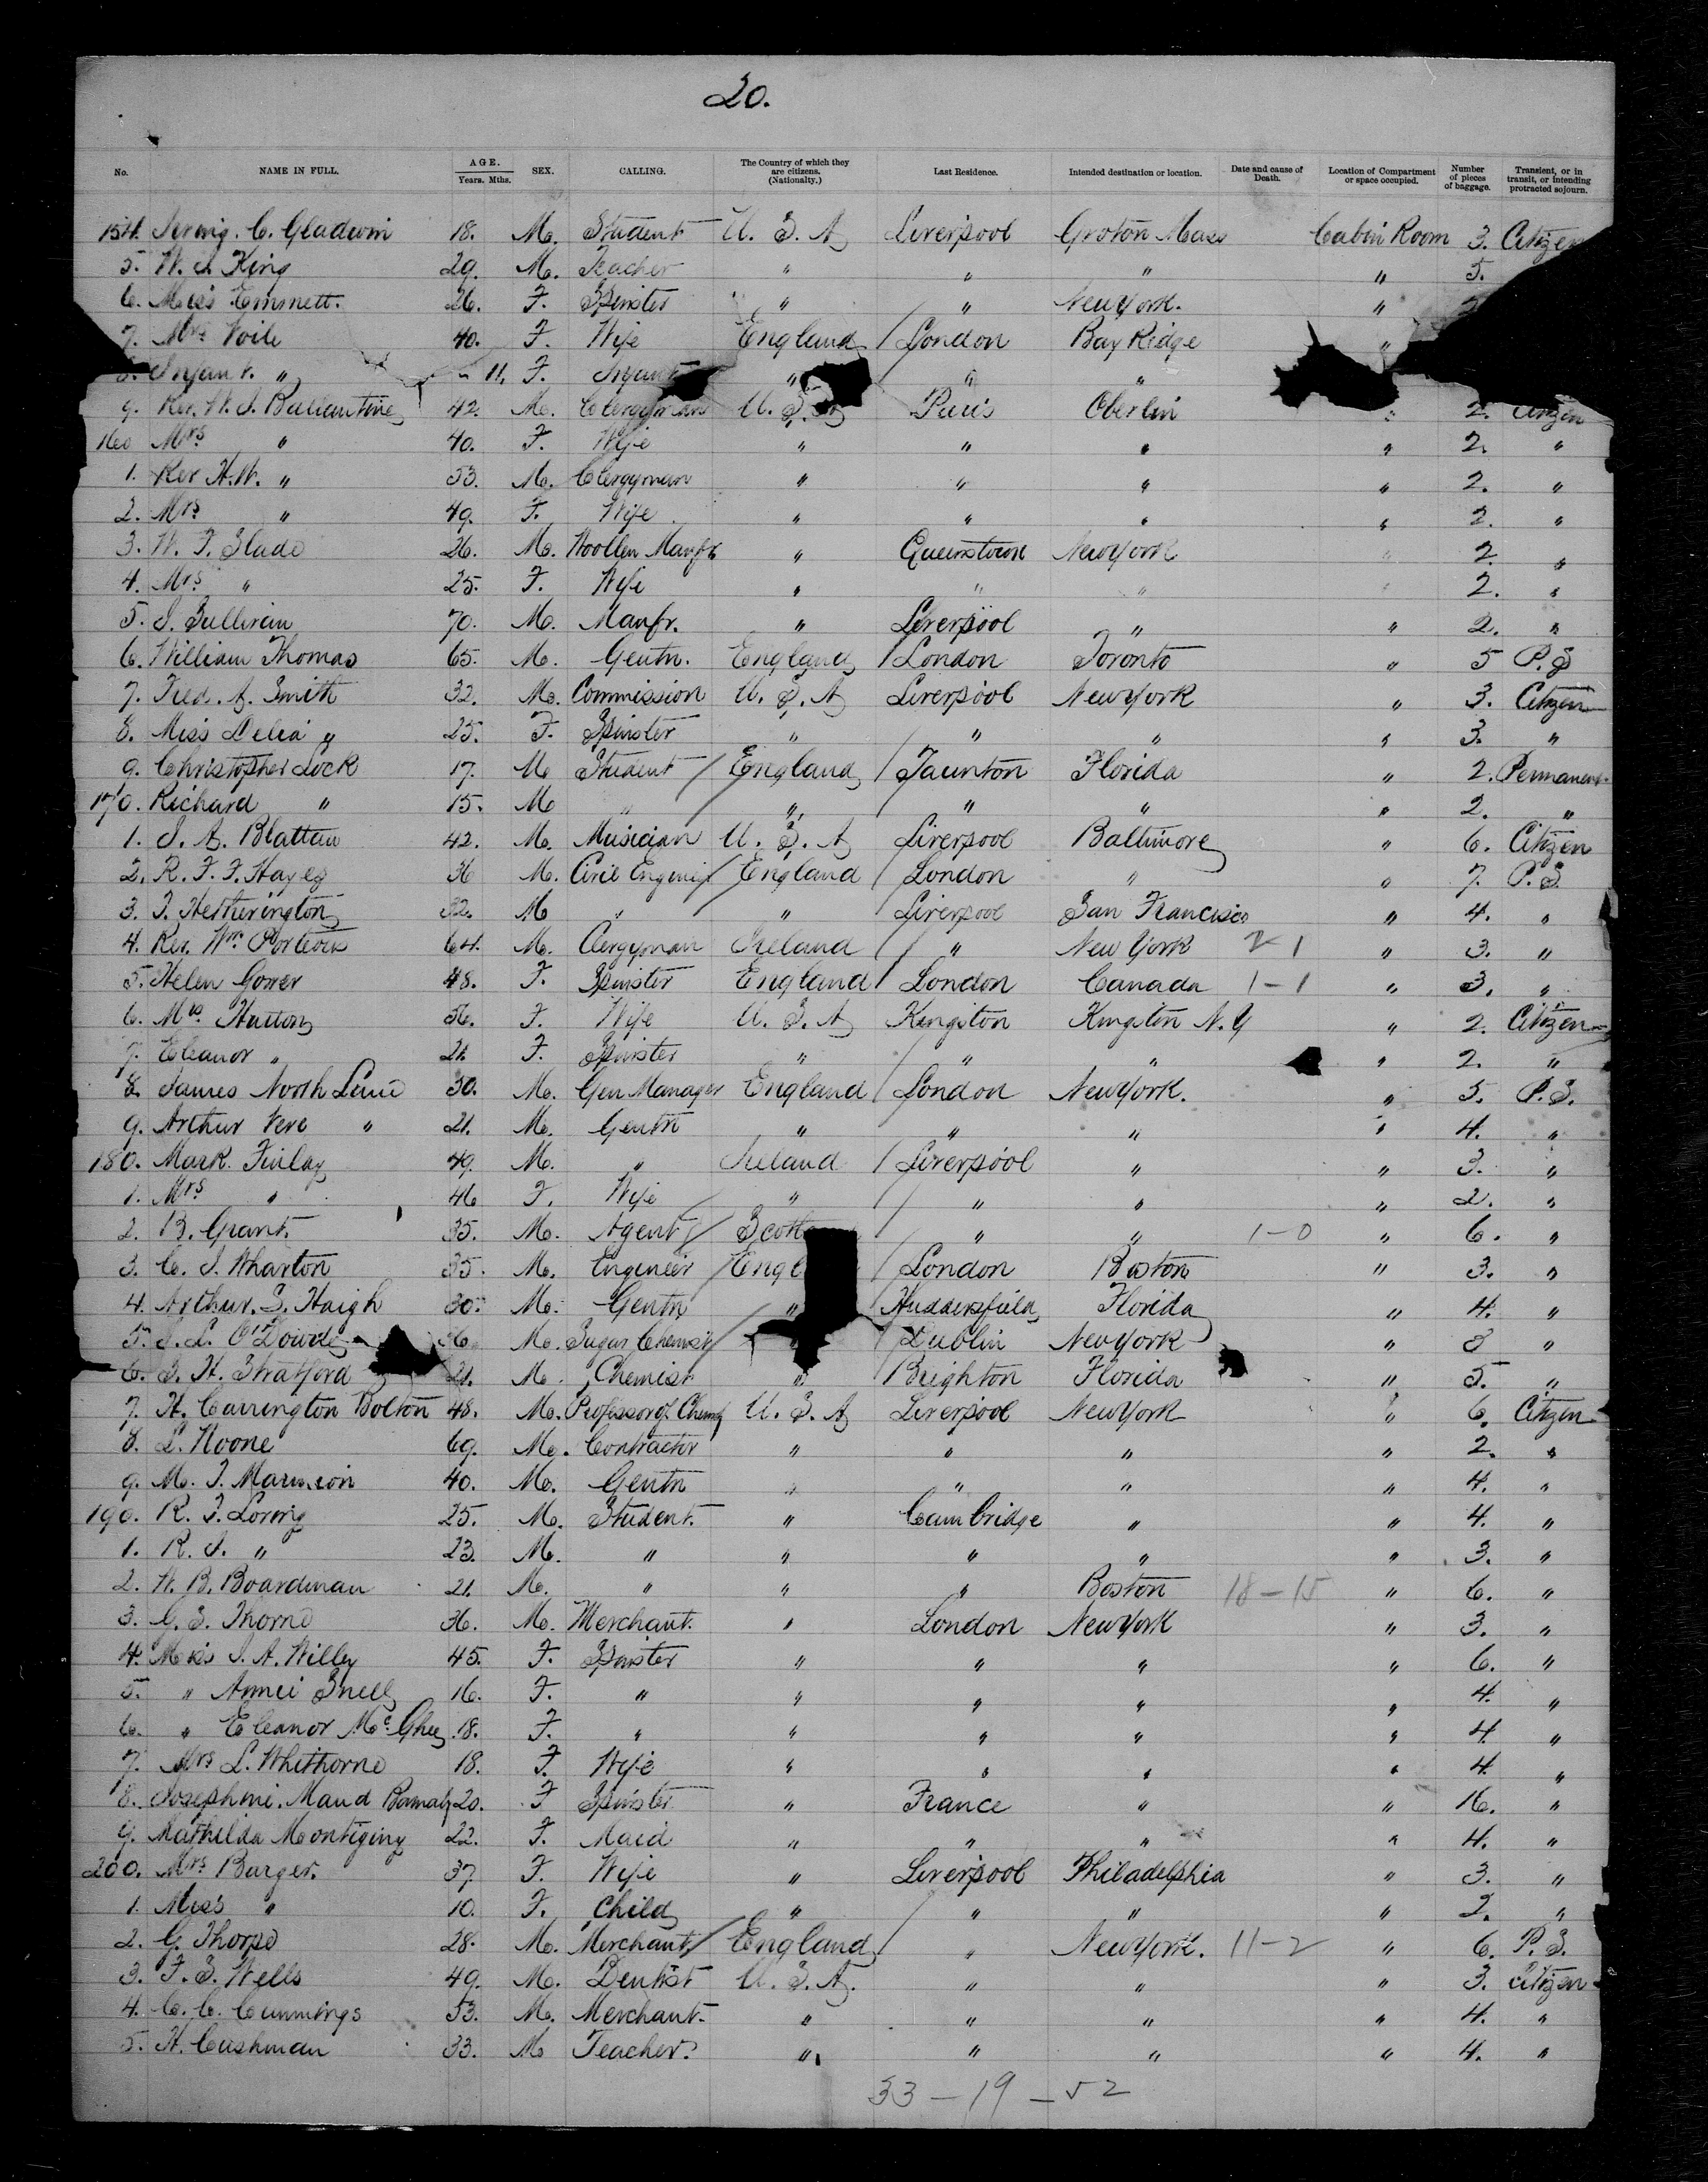 20.
No. NAME IN FULL. AGE. Years. Mths. SEX. CALLING. The Country of which they are citizens. (Nationalty.) Last Residence. Intended destination or location. Date and cause of Death. Location of Compartment or space occupied. Number of pieces of baggage. Transient, or in transit, or intending protracted sojourn.
154. Irving. C. Gladwin 18. M. Student U. S. A Liverpool Groton Mass Cabin Room 3. Citizen
5. W. J. King 29. M. Teacher " " " " 5.
6. Miss Emmett. 26. F. Spinster " " New York. "
7. Mrs Voile 40. F. Wife England London Bay Ridge "
8. Infant. " 11. F. Infant " " "
9. Rev. W. J. Ballantine 42. M. Clergyman U. S. A Paris Oberlin " 2. Citizen
160 Mrs " 40. F. Wife " " " " 2. "
1. Rev H. W. " 53. M. Clergyman " " " " 2. "
2. Mrs " 49. F. Wife " " " " 2. "
3. W. F. Slade 26. M. Woollen Manfr " Queenstown New York " 2. "
4. Mrs " 25. F. Wife " " " " 2. "
5. J. Sullivan 70. M. Manfr. " Liverpool " " 2. "
6. William Thomas 65. M. Gentn. England London Toronto " 5 P. S
7. Fred. A. Smith 32. M. Commission U. S. A Liverpool New York " 3. Citizen
8. Miss Delia " 25. F. Spinster " " " " 3. "
9. Christopher Lock 17. M Student England Taunton Florida " 2. Permanent
170. Richard " 15. M " " " " 2. "
1. J. A. Blattau 42. M. Musician U. S. A Liverpool Baltimore " 6. Citizen
2. R. F. F. Hayes 36 M. Civil Engineer England London " " 7. P. S.
3. T. Hetherington 32. M " " Liverpool San Francisco " 4. "
4. Rev. Wm. Porteous 64. M. Clergyman Ireland " New York 2-1 " 3. "
5. Helen Gower 48. F. Spinster England London Canada 1-1 " 3. "
6. Mrs Hatton 56. F. Wife U. S. A Kingston Kingston N. Y " 2. Citizen
7. Eleanor " 21. F. Spinster " " " " 2. "
8. James North Lane 30. M. Gen Manager England London New York. " 5. P. S.
9. Arthur Vere " 21. M. Gentn " " " " 4. "
180. Mark Finlay 49. M. " Ireland Liverpool " " 3. "
1. Mrs " 46 F. Wife " " " " 2. "
2. B. Grant. 35. M. Agent Scotl " " 1-0 " 6. "
3. C. J. Wharton 35. M. Engineer Engl London Boston " 3. "
4. Arthur. S. Haigh 30. M. Gentn " Huddersfield Florida " 4. "
5. J. L. O'Dowde 36. M. Sugar Chemist Dublin New York " 3 "
6. S. H. Stratford 21. M. Chemist " Brighton Florida " 5. "
7. H. Carrington Bolton 48. M. Professor of Chemy U. S. A Liverpool New York " 6. Citizen
8. L. Noone 69. M. Contractor " " " " 2. "
9. M. J. 40. M. Gentn " " " " 4. "
190. R. J. Loring 25. M. Student. " Cambridge " " 4. "
1. R. J. " 23. M. " " " " " 3. "
2. W. B. Boardman 21. M. " " " Boston 18-15 " 6. "
3. G. S. Thorne 36. M. Merchant. " London New York " 3. "
4. Miss J. A. Willey 45. F. Spinster " " " " 6. "
5. " Annie Snell 16. F. " " " " " 4. "
6. " Eleanor McGhee 18. F. " " " " " 4. "
7. Mrs L. Whithorne 18. F. Wife " " " " 4. "
8. Josephine. Maud 20. F Spinster " France " " 16. "
9. Mathilda Montigny 22. F. Maid " " " " 4. "
200. Mrs Burger. 37. F. Wife " Liverpool Philadelphia " 3. "
1. Miss " 10. F. Child " " " " 2. "
2. G. Thorpe 28. M. Merchant England " New York. 11-2 " 6. P. S.
3. F. S. Wells 49. M. Dentist U. S. A. " " " 3. Citizen
4. C. C. Cummings 53. M. Merchant. " " " " 4. "
5. H. Cushman 33. M Teacher. " " " " 4. "
33-19-52